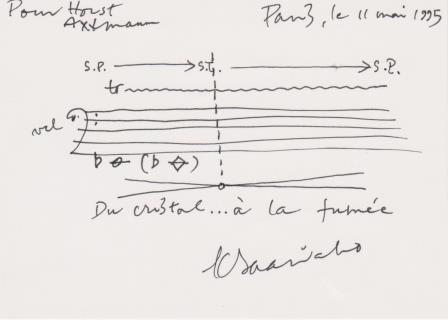 Pour Horst Axtmann
Paris, le 11 mai 1995
S.P. → S.T. → S.P.
tr
vcl
Du cristal...à la fumée
K Saariaho